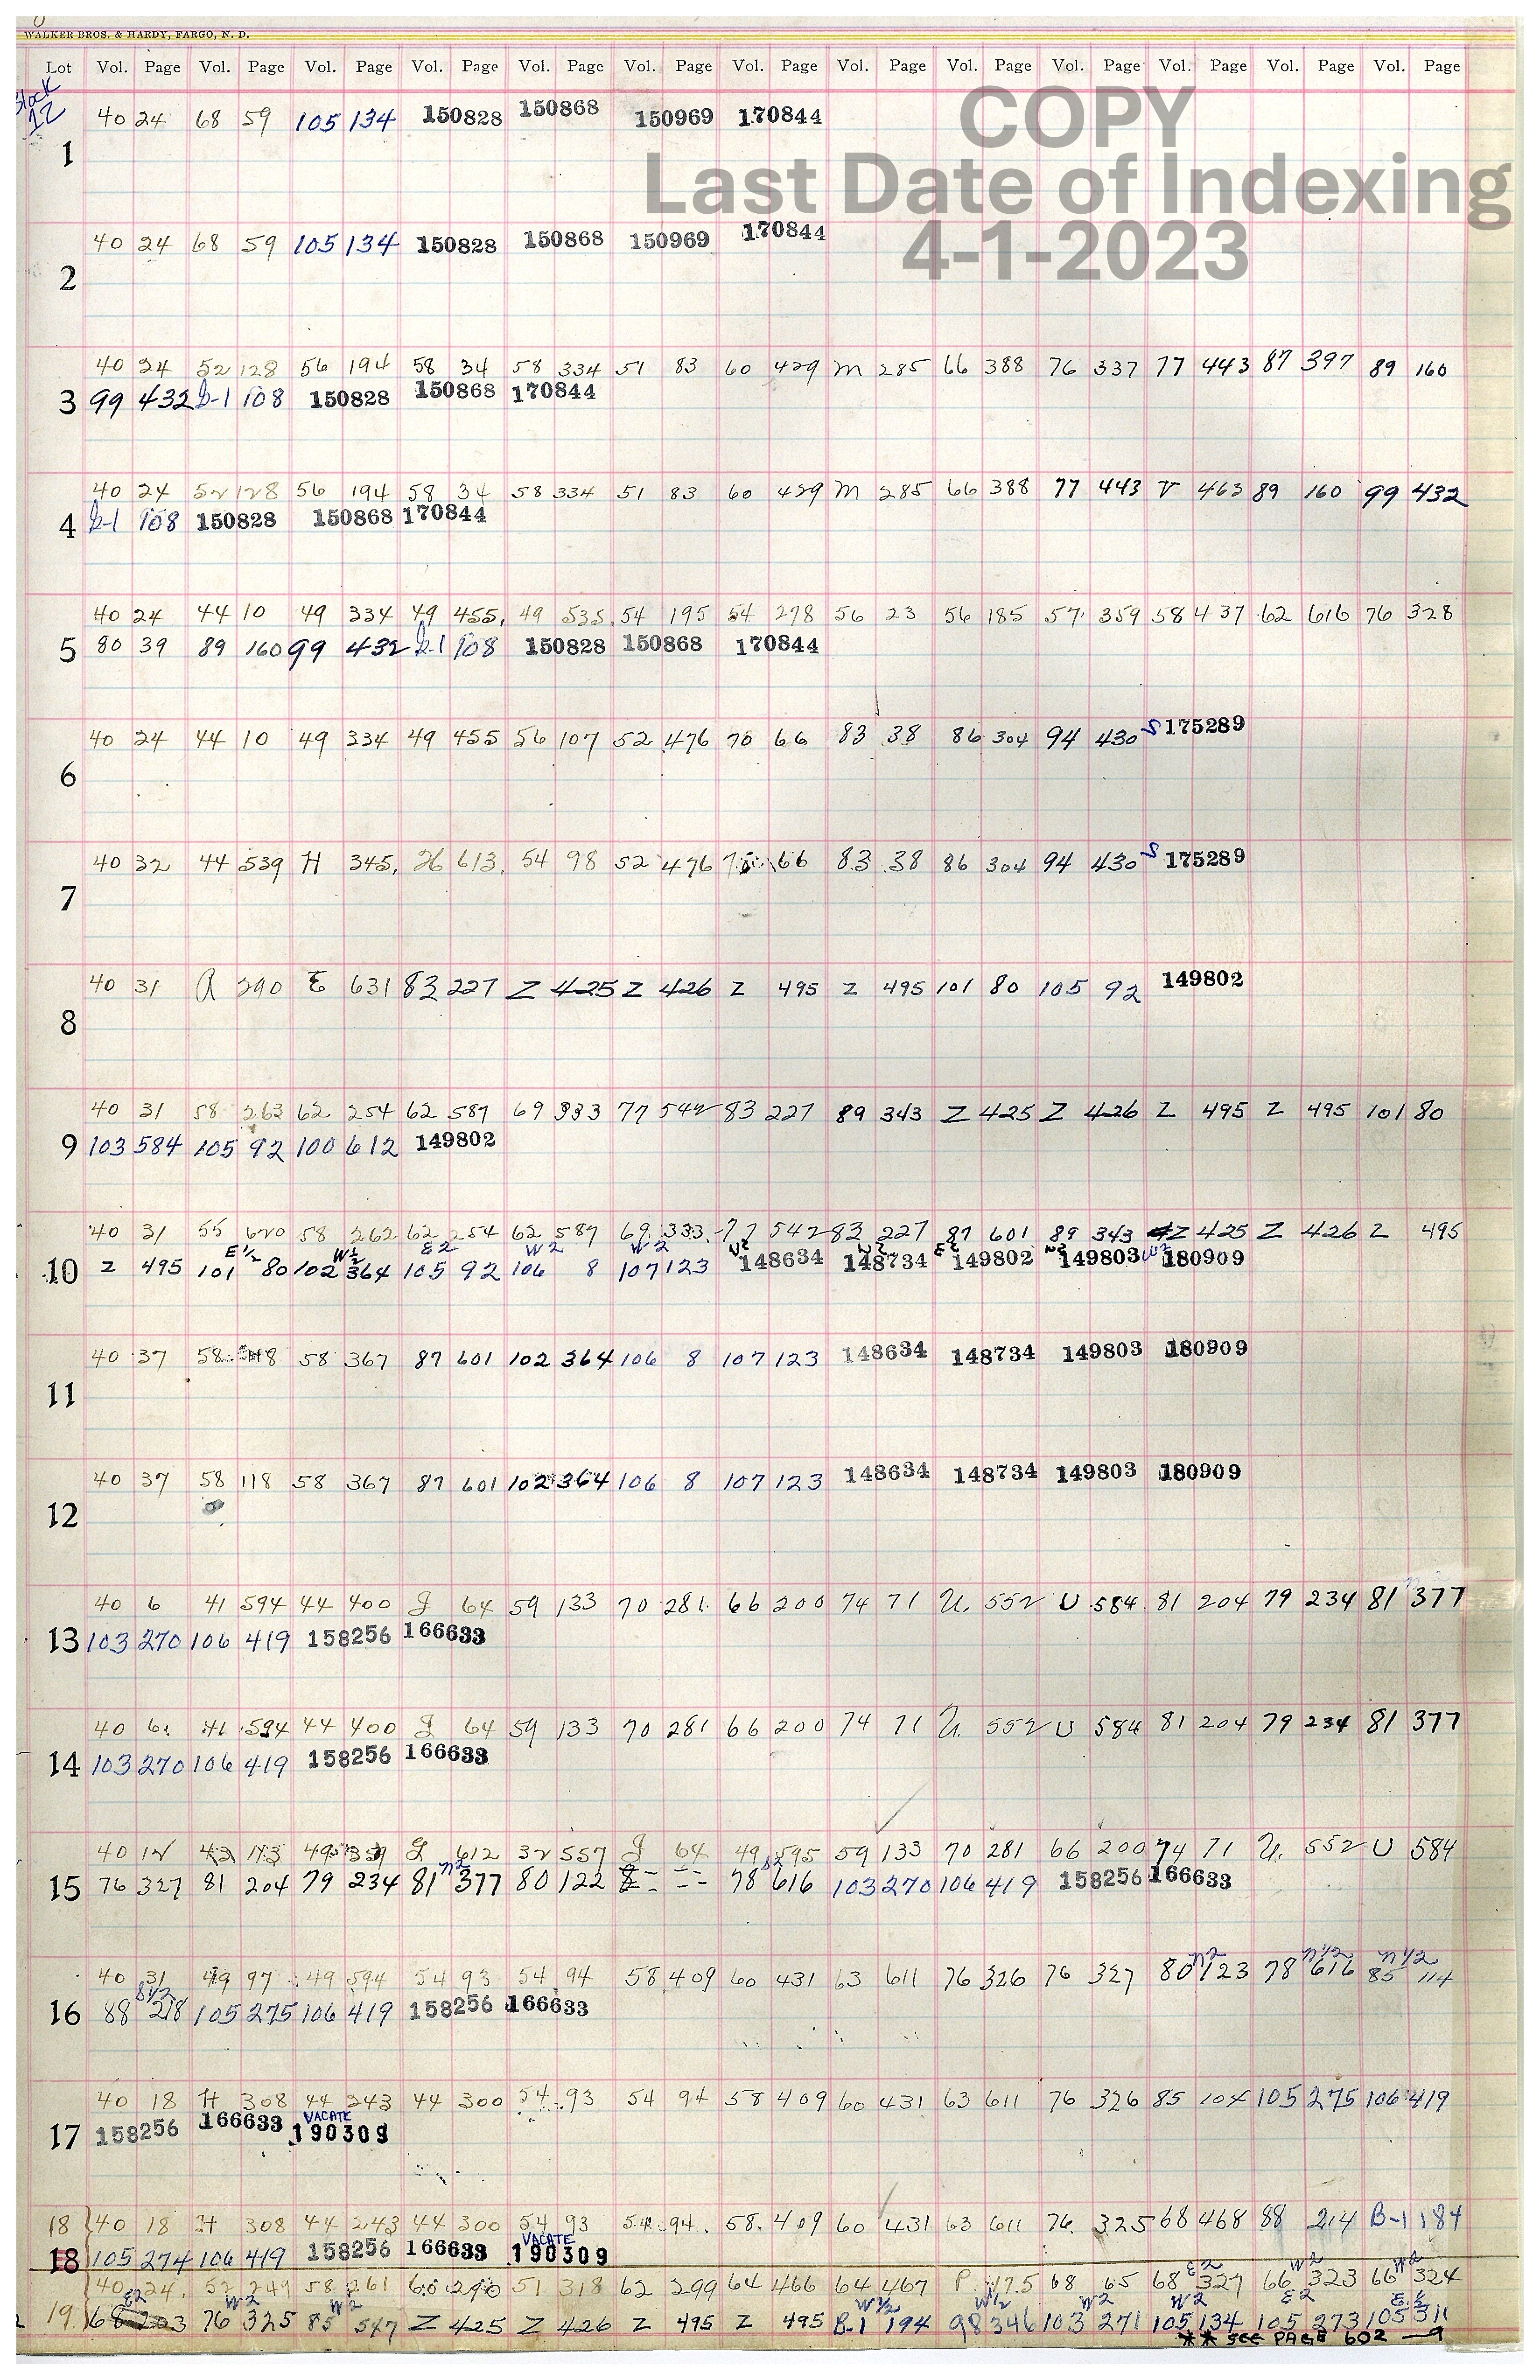 WALKER BROS. & HARDY, FARGO, N. D.
Lot Vol. Page Vol. Page Vol. Page Vol. Page Vol. Page Vol. Page Vol. Page Vol. Page Vol. Page Vol. Page Vol. Page Vol. Page Vol. Page
Block
12
COPY
Last Date of Indexing
4-1-2023
40 24 68 59 105 134 150828 150868 150969 170844
1
40 24 68 59 105 134 150828 150868 150969 170844
2
40 24 52 128 56 194 58 34 58 334 51 83 60 429 M 285 66 388 76 337 77 443 87 397 89 160
3 99 432 108 150828 150868 170844
40 24 52 128 56 194 58 34 58 334 51 83 60 429 M 285 66 388 77 443 V 463 89 160 99 432
4 108 150828 150868 170844
40 24 44 10 49 334 49 455, 49 535, 54 195 54 278 56 23 56 185 57 359 58 437 62 616 76 328
5 80 39 89 160 99 432 108 150828 150868 170844
40 24 44 10 49 334 49 455 56 107 52 476 70 66 83 38 86 304 94 430 S 175289
6
40 32 44 539 H 345, 613, 54 98 52 476 66 83 38 86 304 94 430 S 175289
7
40 31 A 290 E 631 83 227 Z 425 Z 426 Z 495 Z 495 101 80 105 92 149802
8
40 31 58 263 62 254 62 587 69 333 77 542 83 227 89 343 Z 425 Z 426 Z 495 Z 495 101 80
9 103 584 105 92 100 612 149802
40 31 55 620 58 262 62 254 62 587 69 333 77 542 83 227 87 601 89 343 Z 425 Z 426 Z 495
E 1/2 W 1/2 E 2 W 2 W 2 W 2 W 2 E 2 W 2 W 2
10 Z 495 101 80 102 364 105 92 106 8 107 123 148634 148734 149802 149803 180909
40 37 58 118 58 367 87 601 102 364 106 8 107 123 148634 148734 149803 180909
11
40 37 58 118 58 367 87 601 102 364 106 8 107 123 148634 148734 149803 180909
12
40 6 41 594 44 400 J 64 59 133 70 281 66 200 74 71 U. 552 U 584 81 204 79 234 81 377
13 103 270 106 419 158256 166633
40 6 41 594 44 400 J 64 59 133 70 281 66 200 74 71 U. 552 U 584 81 204 79 234 81 377
14 103 270 106 419 158256 166633
40 12 43 173 49 339 J 612 32 557 J 64 49 595 59 133 70 281 66 200 74 71 U. 552 U 584
N2 S2
15 76 327 81 204 79 234 81 377 80 122 78 616 103 270 106 419 158256 166633
N2 N1/2 N1/2
40 31 49 97 49 594 54 93 54 94 58 409 60 431 63 611 76 326 76 327 80 123 78 616 85 114
S1/2
16 88 218 105 275 106 419 158256 166633
40 18 H 308 44 243 44 300 54 93 54 94 58 409 60 431 63 611 76 326 85 104 105 275 106 419
VACATE
17 158256 166633 190309
18 40 18 H 308 44 243 44 300 54 93 54 94 58 409 60 431 63 611 76 325 68 468 88 214 B-1 184
VACATE
18 105 274 106 419 158256 166633 190309
E2 W2 W2
40 24 52 249 58 261 60 290 51 318 62 299 64 466 64 467 P. 175 68 65 68 327 66 323 66 324
E2 W2 W2 W 1/2 W 1/2 W2 W2 E2 E 1/2
19 68 203 76 325 85 547 Z 425 Z 426 Z 495 Z 495 B-1 194 98 346 103 271 105 134 105 273 105 311
** SEE PAGE 602 — 9